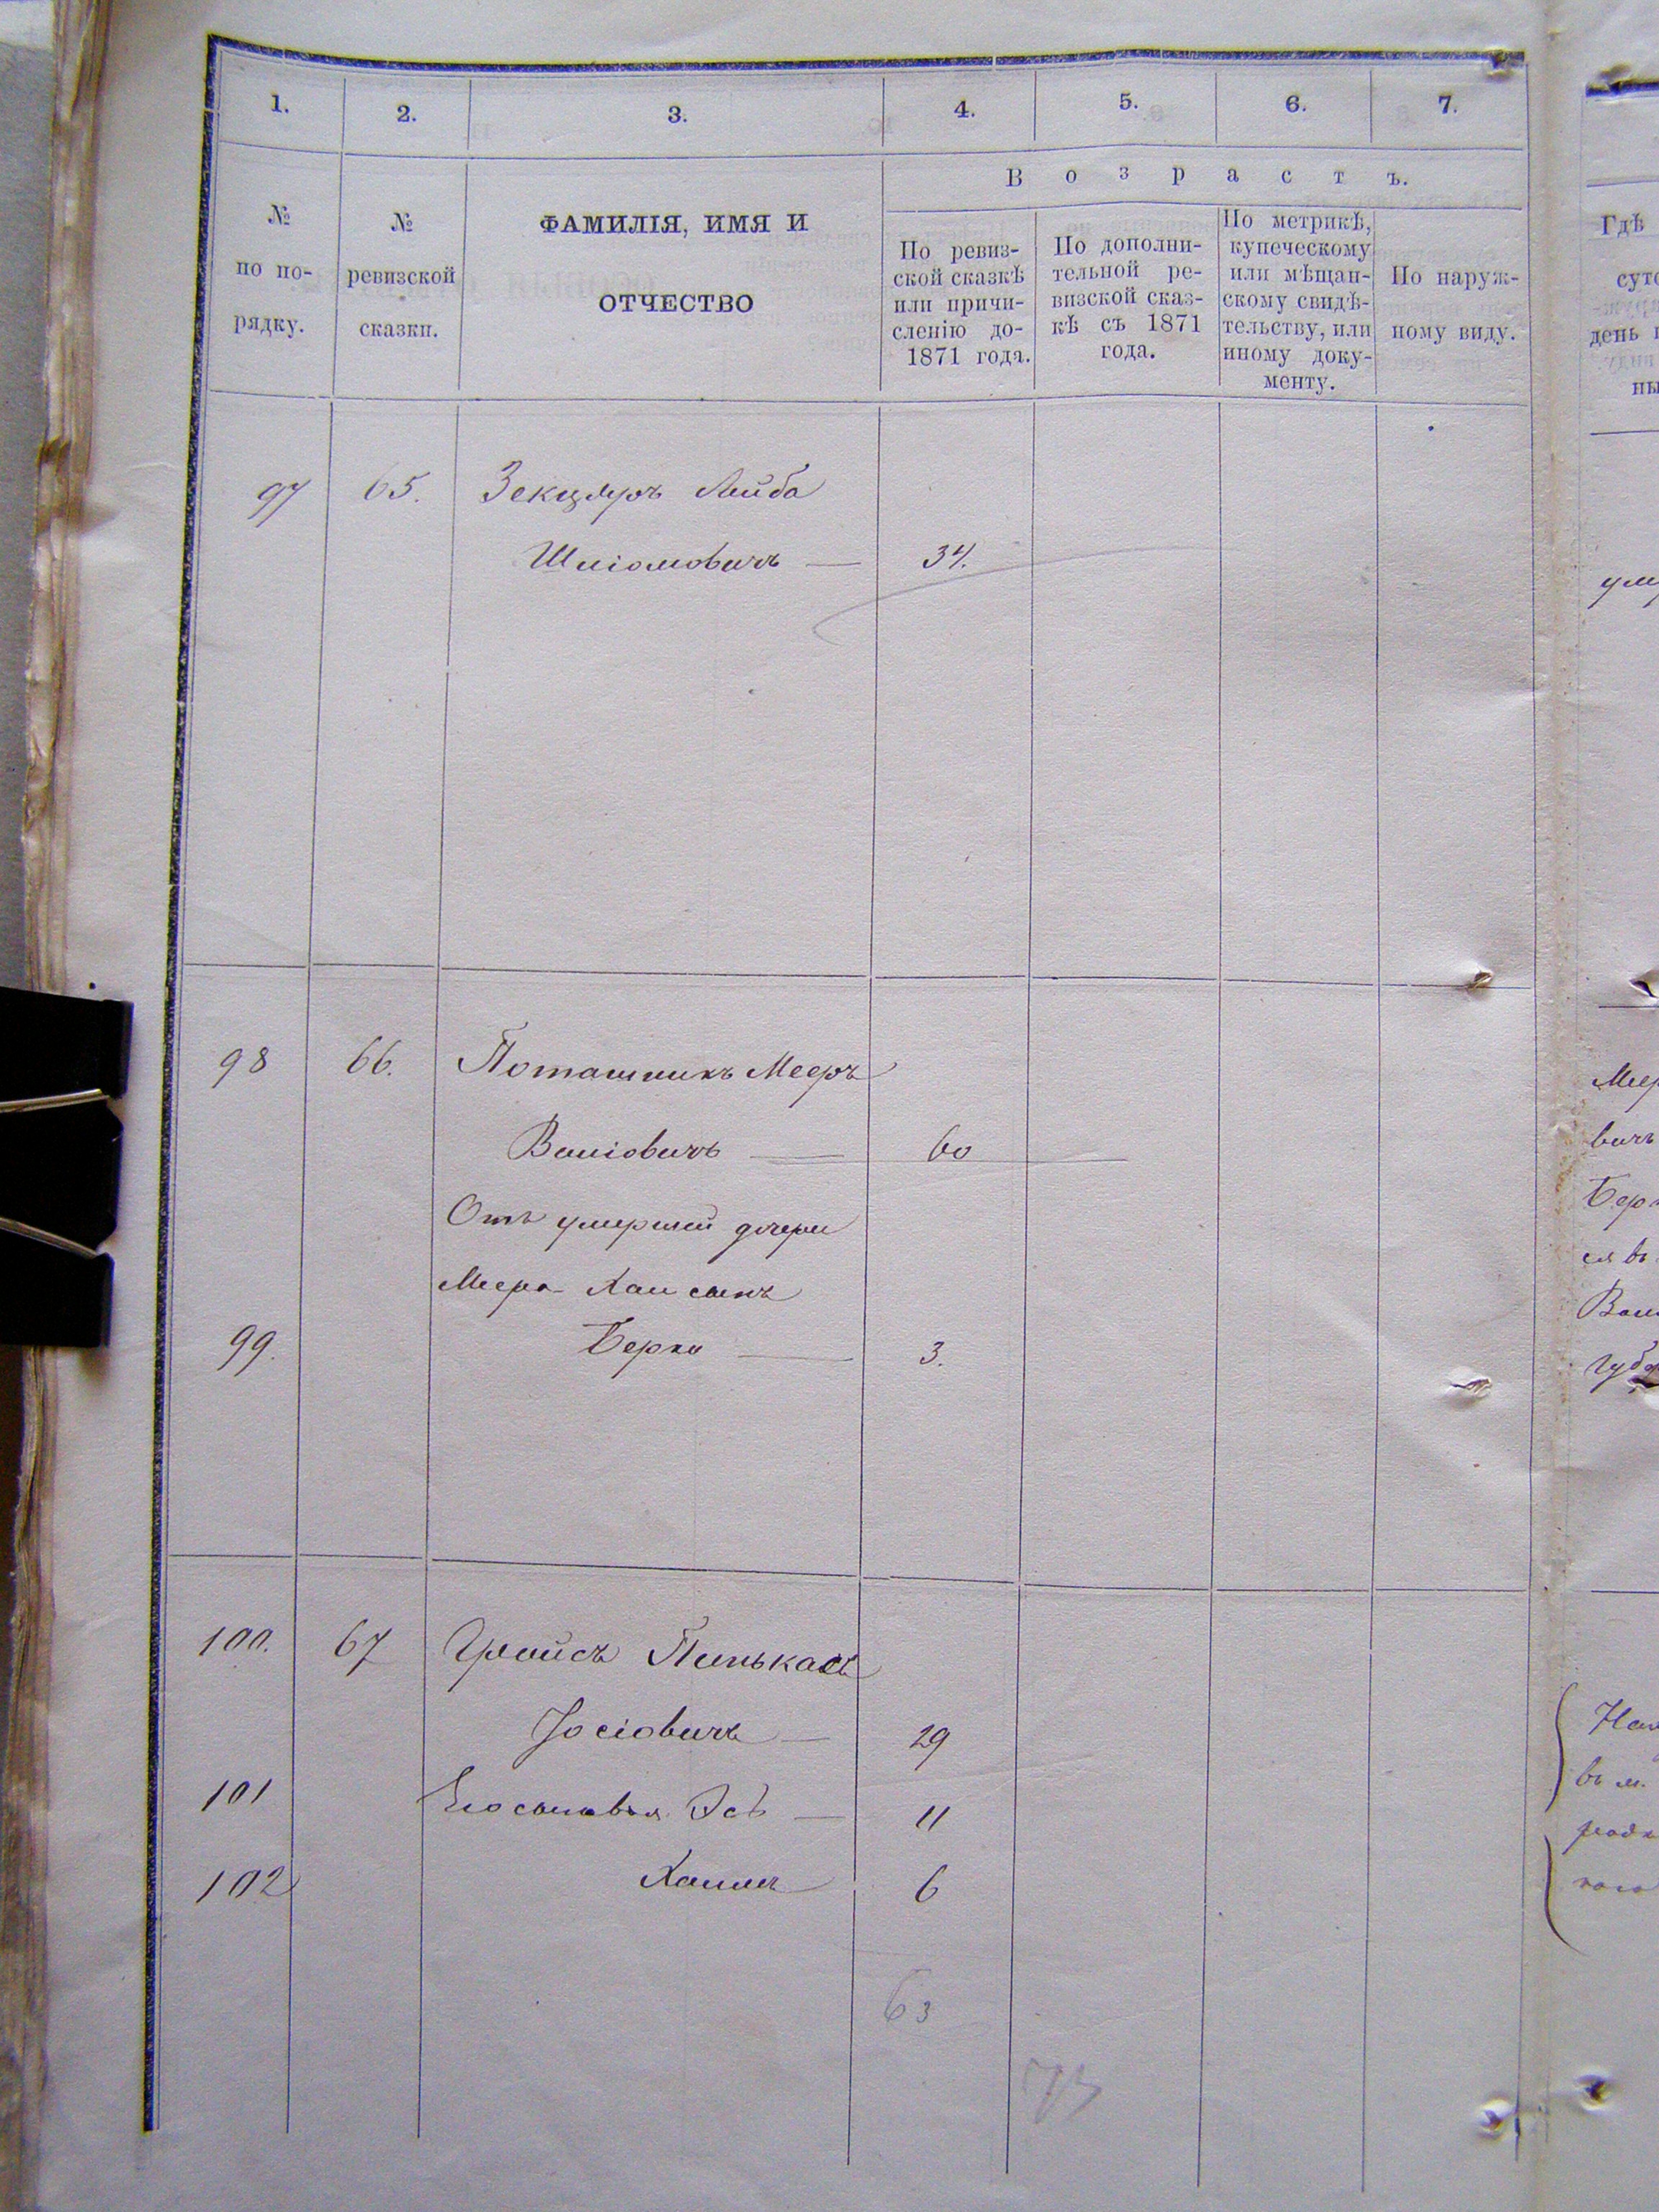 1. 2. 3. 4. 5. 6. 7.
В о з р а с т ъ.
№ по по- рядку.
№ ревизской сказки.
ФАМИЛІЯ, ИМЯ И
ОТЧЕСТВО
По ревиз-
ской сказкѣ
или причи-
сленію до-
1871 года.
По дополни-
тельной ре-
визской сказ-
кѣ съ 1871
года.
По метрикѣ,
купеческому
или мѣщан-
скому свидѣ-
тельству, или
иному доку-
менту.
По наруж-
ному виду.
97 65. Зекцеръ Лейба
Шліомовичъ — 34.
98 66. Поташникъ Мееръ
Воліовичъ — 60
Отъ умершей дочери
Меера Хаи сынъ
99. Берко — 3.
100. 67 Гройсъ Пинькасъ
Іосіовичъ — 29
101 Его сыновья Эсѣ — 11
102 Хаимъ 6
63
73
Гдѣ
суто
день
ны
умер
Меер
вичъ
Берк
ся въ
губ
въ м.